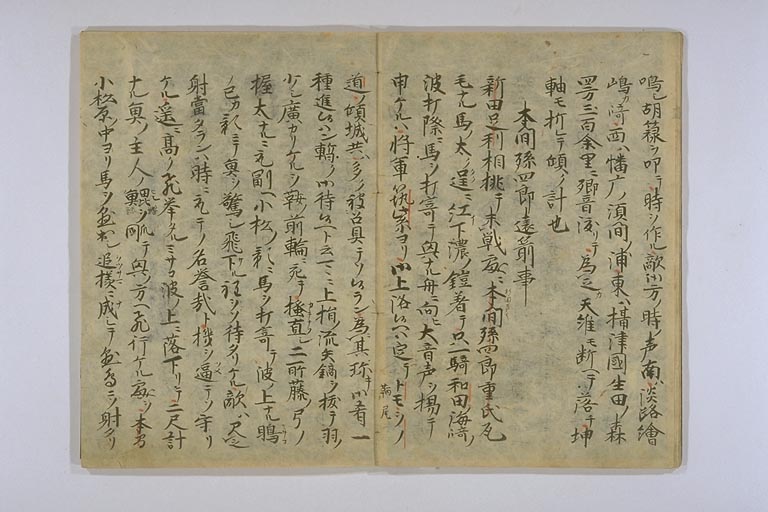 鳴シ胡籙ヲ叩テ時ヲ作ル敵御方ノ時ノ声南ハ淡路繪
嶋カ﨑西ハ播广ノ須間ノ浦東ハ攝津國生田ノ森
四方三百余里ニ響音渡リテ為之天維モ断テ落チ坤
軸モ折ヒテ傾ク計也
本間孫四郎遠箭事
新田足利相挑テ未戦處ニ本間孫四郎重氏瓦
毛ナル馬ノ太ク逞ニ江下濃ノ鎧著テ只一騎和田ノ海﨑ノ
波打際ニ馬ヲ打寄テ奥ナル舟ニ向ヒ大音声ヲ揚テ
申ケルハ将軍筑紫ヨリ御上洛候ヘハ定テトモシノ
道ノ傾城共ハ多ク被召具テソ候ラン為其珍キ御肴一
種進候ハン暫ク御待候ヘト云ニ上指ノ流矢鏑ヲ抜テ羽ノ
少シ廣カリケルヲ鞍ノ前輪ニ充テ極直シ二所藤ノ弓ノ
握太ナルニ充副ヘ小松ノ影ニ馬ヲ打寄テ波ノ上ナル鵙
ノ己カ影ニテ魚ヲ驚シ飛下ル程ヲソ待タリケル敵ハ是
射當タランハ時ニ充テノ名誉哉ト機ヲ逼テソ守リ
ケル遥ニ高ク飛挙タルミサコ波ノ上ニ落下リテ二尺計
ナル魚ノ主人鰥ヲ𠛬テ奥ノ方ヘ飛行ケル處ヲ本間
小松原ノ中ヨリ馬ヲ懸出シ追様ニ成シテ懸鳥ニソ射タリ